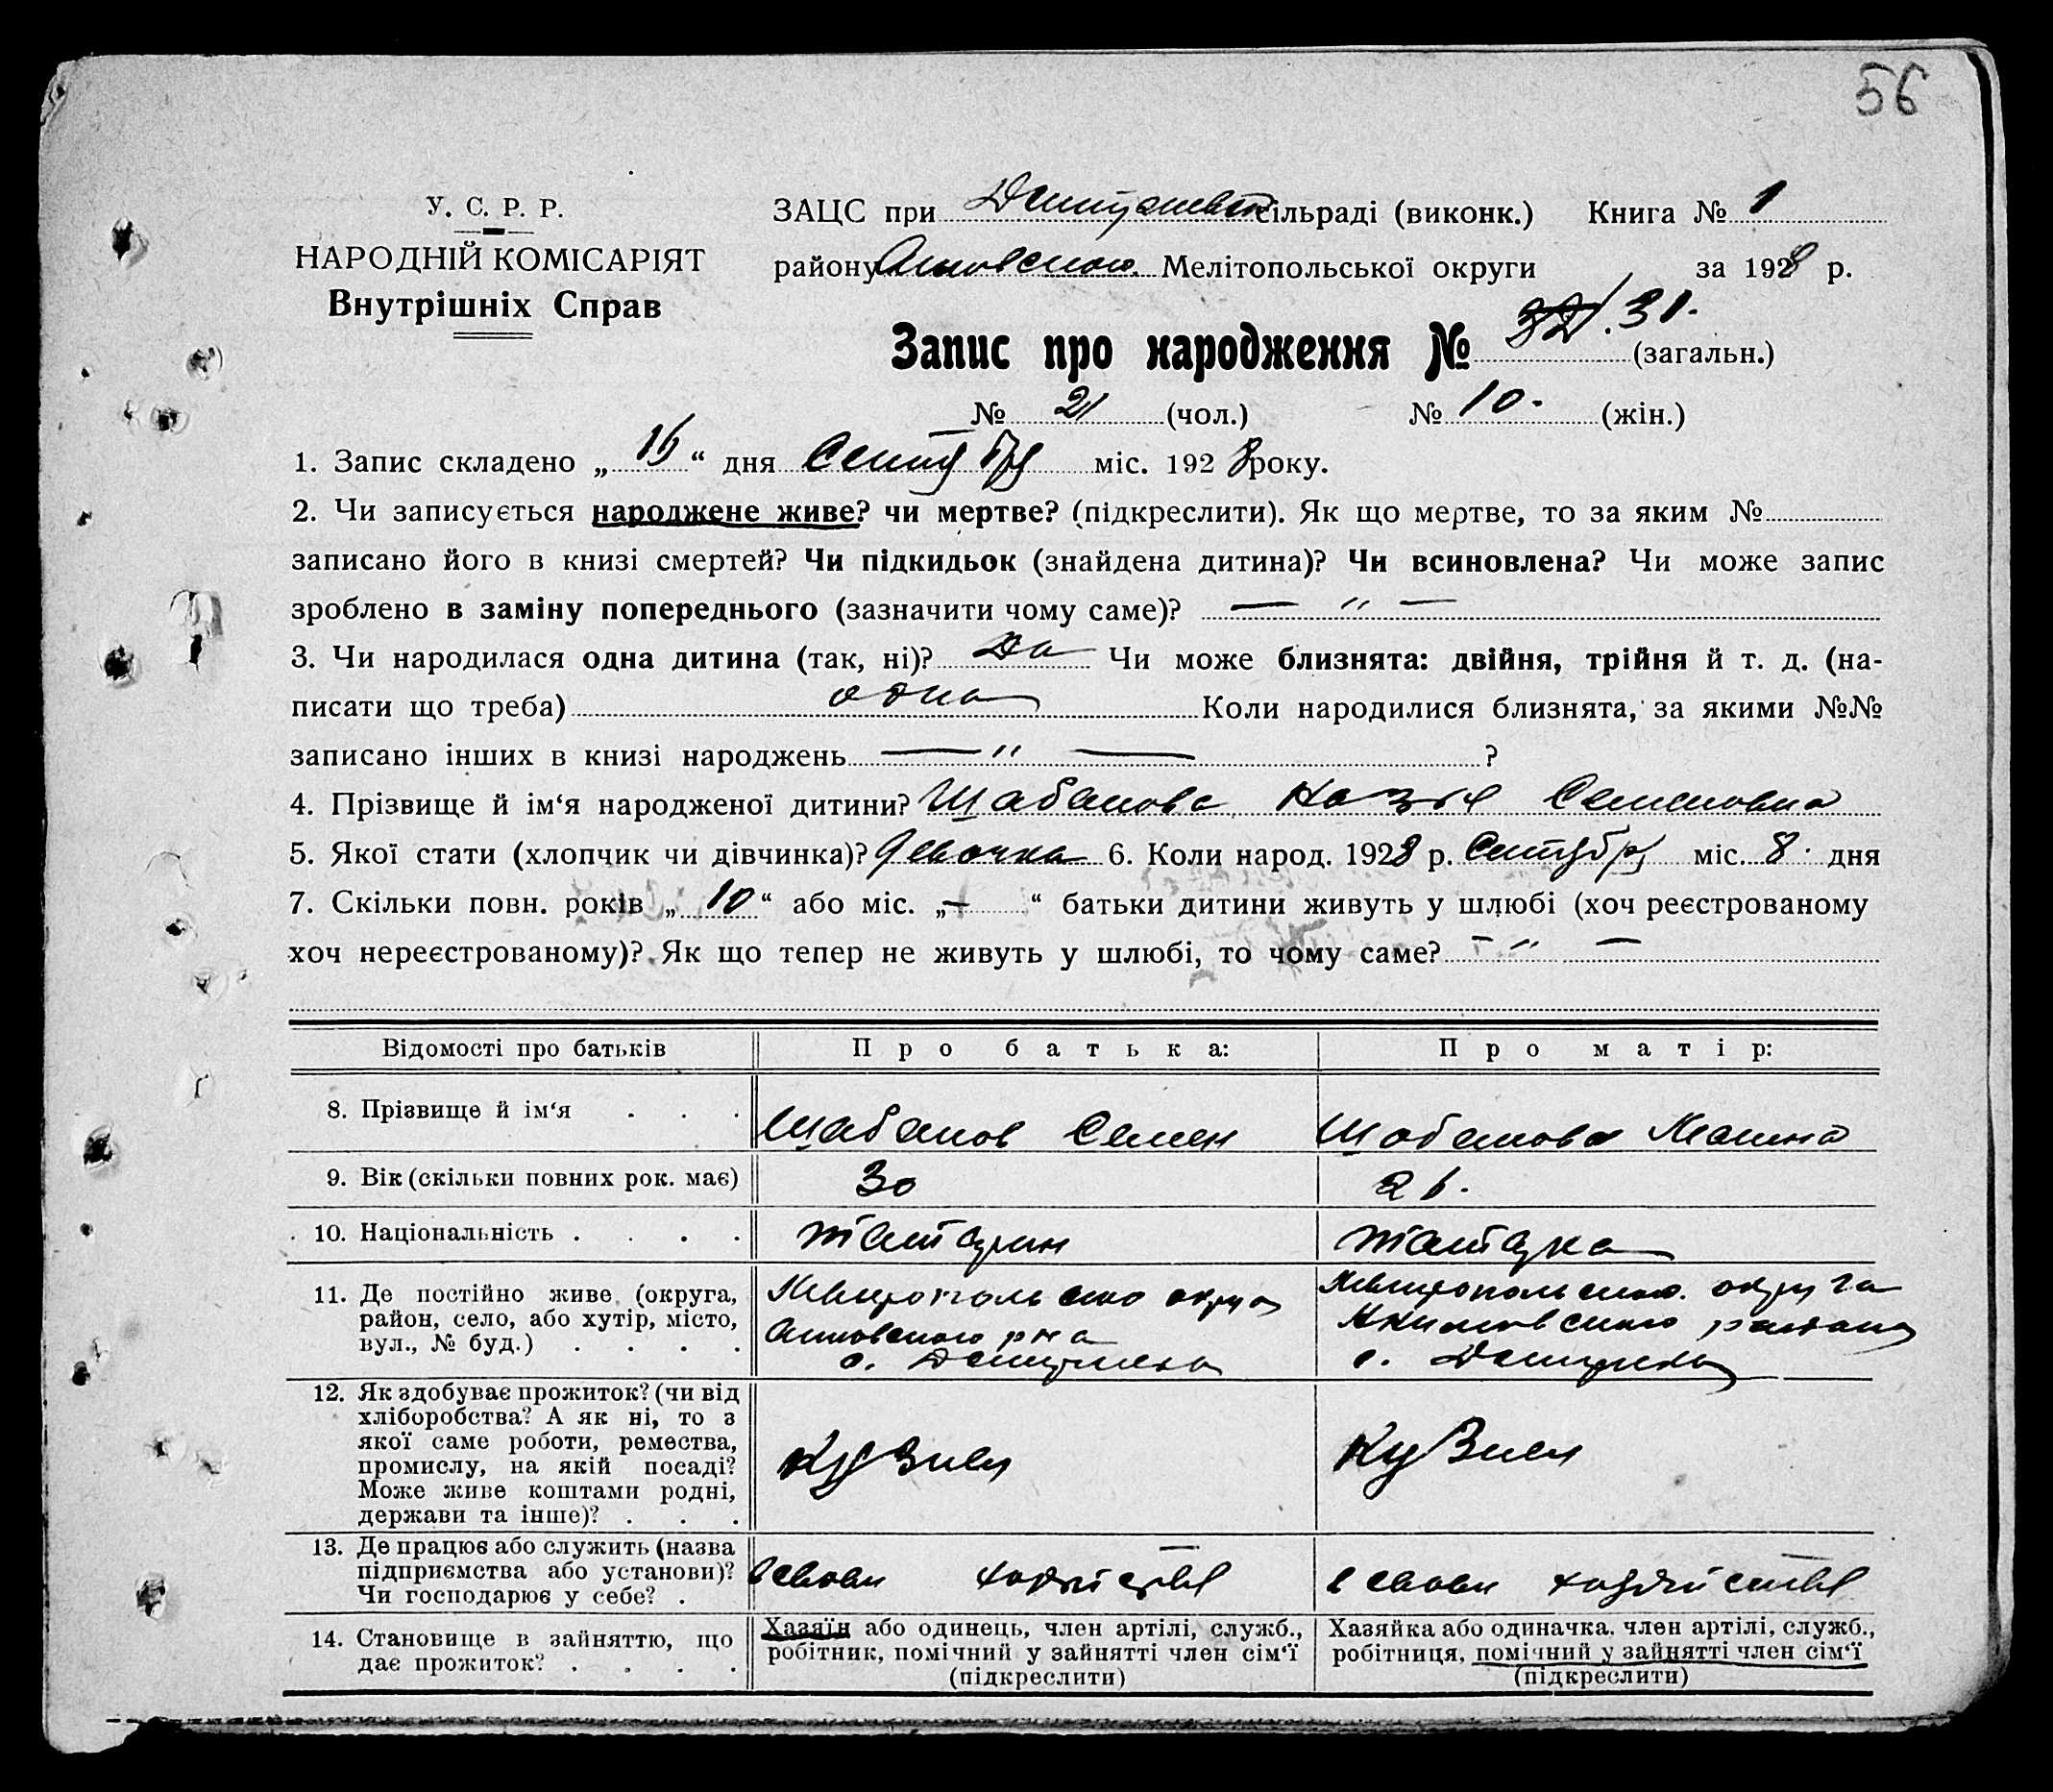 56
У. С. Р. Р.
НАРОДНІЙ КОМІСАРІЯТ
Внутрішніх Справ
ЗАЦС при сільраді (виконк.) Книга № 1
району Мелітопольської округи за 1928 р.
Запис про народження № 31. (загальн.)
№ 21 (чол.) № 10. (жін.)
1. Запис складено „ “ дня міс. 1928 року.
2. Чи записується народжене живе? чи мертве? (підкреслити). Як що мертве, то за яким №
записано його в книзі смертей? Чи підкидьок (знайдена дитина)? Чи всиновлена? Чи може запис
зроблено в заміну попереднього (зазначити чому саме)? — „ —
3. Чи народилася одна дитина (так, ні)? Да Чи може близнята: двійня, трійня й т. д. (на-
писати що треба) одна Коли народилися близнята, за якими №№
записано інших в книзі народжень — „ — ?
4. Прізвище й ім‘я народженої дитини? Шабанова Семеновна
5. Якої стати (хлопчик чи дівчинка)? Девочка 6. Коли народ. 1928 р. Сентября міс. 8. дня
7. Скільки повн. років „ 10 “ або міс. „ — “ батьки дитини живуть у шлюбі (хоч реєстрованому
хоч нереєстрованому)? Як що тепер не живуть у шлюбі, то чому саме? — „ —
Відомості про батьків Про батька: Про матір:
8. Прізвище й ім‘я . . . Шабанов Семен Шабанова
9. Вік (скільки повних рок. має) 30 26.
10. Національність . . . . Татарин Татарка
11. Де постійно живе (округа,
район, село, або хутір, місто,
вул., № буд.) . . . .
Мелитопольского округа
Акимовского района
с.
12. Як здобуває прожиток? (чи від
хліборобства? А як ні, то з
якої саме роботи, ремества,
промислу, на якій посаді?
Може живе коштами родні,
держави та інше)? . . .
Кузнец Кузнец
13. Де працює або служить (назва
підприємства або установи)?
Чи господарює у себе? .
в своем хозяйстве в своем хозяйстве
14. Становище в зайняттю, що
дає прожиток? . . . .
Хазяїн або одинець, член артілі, служб.,
робітник, помічний у зайнятті член сім‘ї
(підкреслити)
Хазяйка або одиначка. член артілі, служб.,
робітниця, помічний у зайнятті член сім‘ї
(підкреслити)